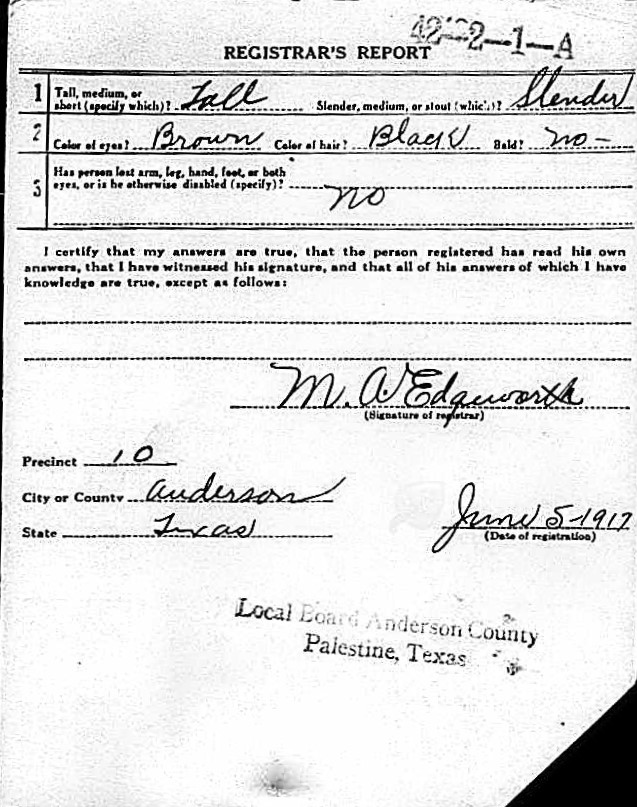 42-2-1-A
REGISTRAR'S REPORT
1 Tall, medium, or short (specify which)? Tall Slender, medium, or stout (which)? Slender
2 Color of eyes? Brown Color of hair? Black Bald? no-
3 Has person lost arm, leg, hand, foot, or both
eyes, or is he otherwise disabled (specify)? no
I certify that my answers are true, that the person registered has read his own
answers, that I have witnessed his signature, and that all of his answers of which I have
knowledge are true, except as follows:
M. A. Edgeworth
(Signature of registrar)
Precinct 10
City or County Anderson
State Texas
June 5-1917
(Date of registration)
Local Board Anderson County
Palestine, Texas